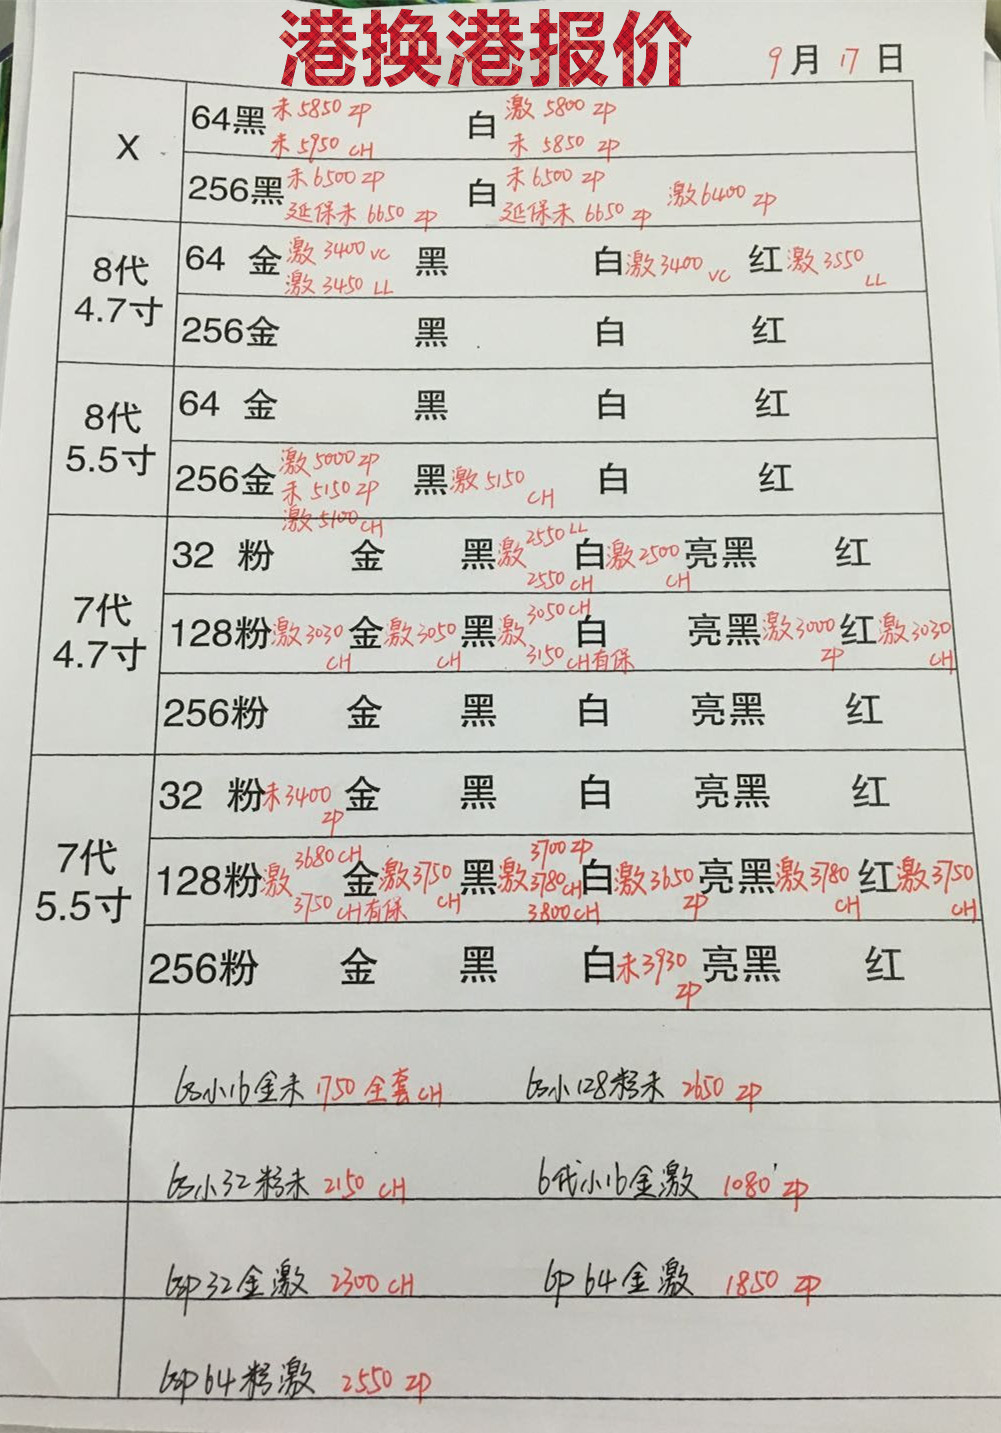 港换港报价
9月17日
X
64黑 未5850 ZP 白 激5800 ZP
未5950 CH 未5850 ZP
256黑 未6500 ZP 白 未6500 ZP 激6400 ZP
延保未6650 ZP 延保未6650 ZP
8代
4.7寸
64 金 激3400 VC 黑 白 激3400 VC 红 激3550 LL
激3450 LL
256金 黑 白 红
8代
5.5寸
64 金 黑 白 红
256金 激5000 ZP 黑 激5150 CH 白 红
未5150 ZP
激5100 CH
7代
4.7寸
32 粉 金 黑 激 2550 LL 白 激2500 CH 亮黑 红
2550 CH
128粉 激3030 CH 金 激3050 CH 黑 激 3050 CH 白 亮黑 激3000 ZP 红 激3030 CH
3150 CH有保
256粉 金 黑 白 亮黑 红
7代
5.5寸
32 粉 未3400 ZP 金 黑 白 亮黑 红
128粉 激 3680 CH 金 激3750 CH 黑 激 3700 ZP 白 激3650 ZP 亮黑 激3780 CH 红 激3750 CH
3750 CH有保 3780 CH
3800 CH
256粉 金 黑 白 未3930 ZP 亮黑 红
6s小16金未 1750 全套CH 6s小128粉未 2650 ZP
6s小32粉未 2150 CH 6代小16金激 1080 ZP
6sp32金激 2300 CH 6p 64金激 1850 ZP
6sp64粉激 2550 ZP